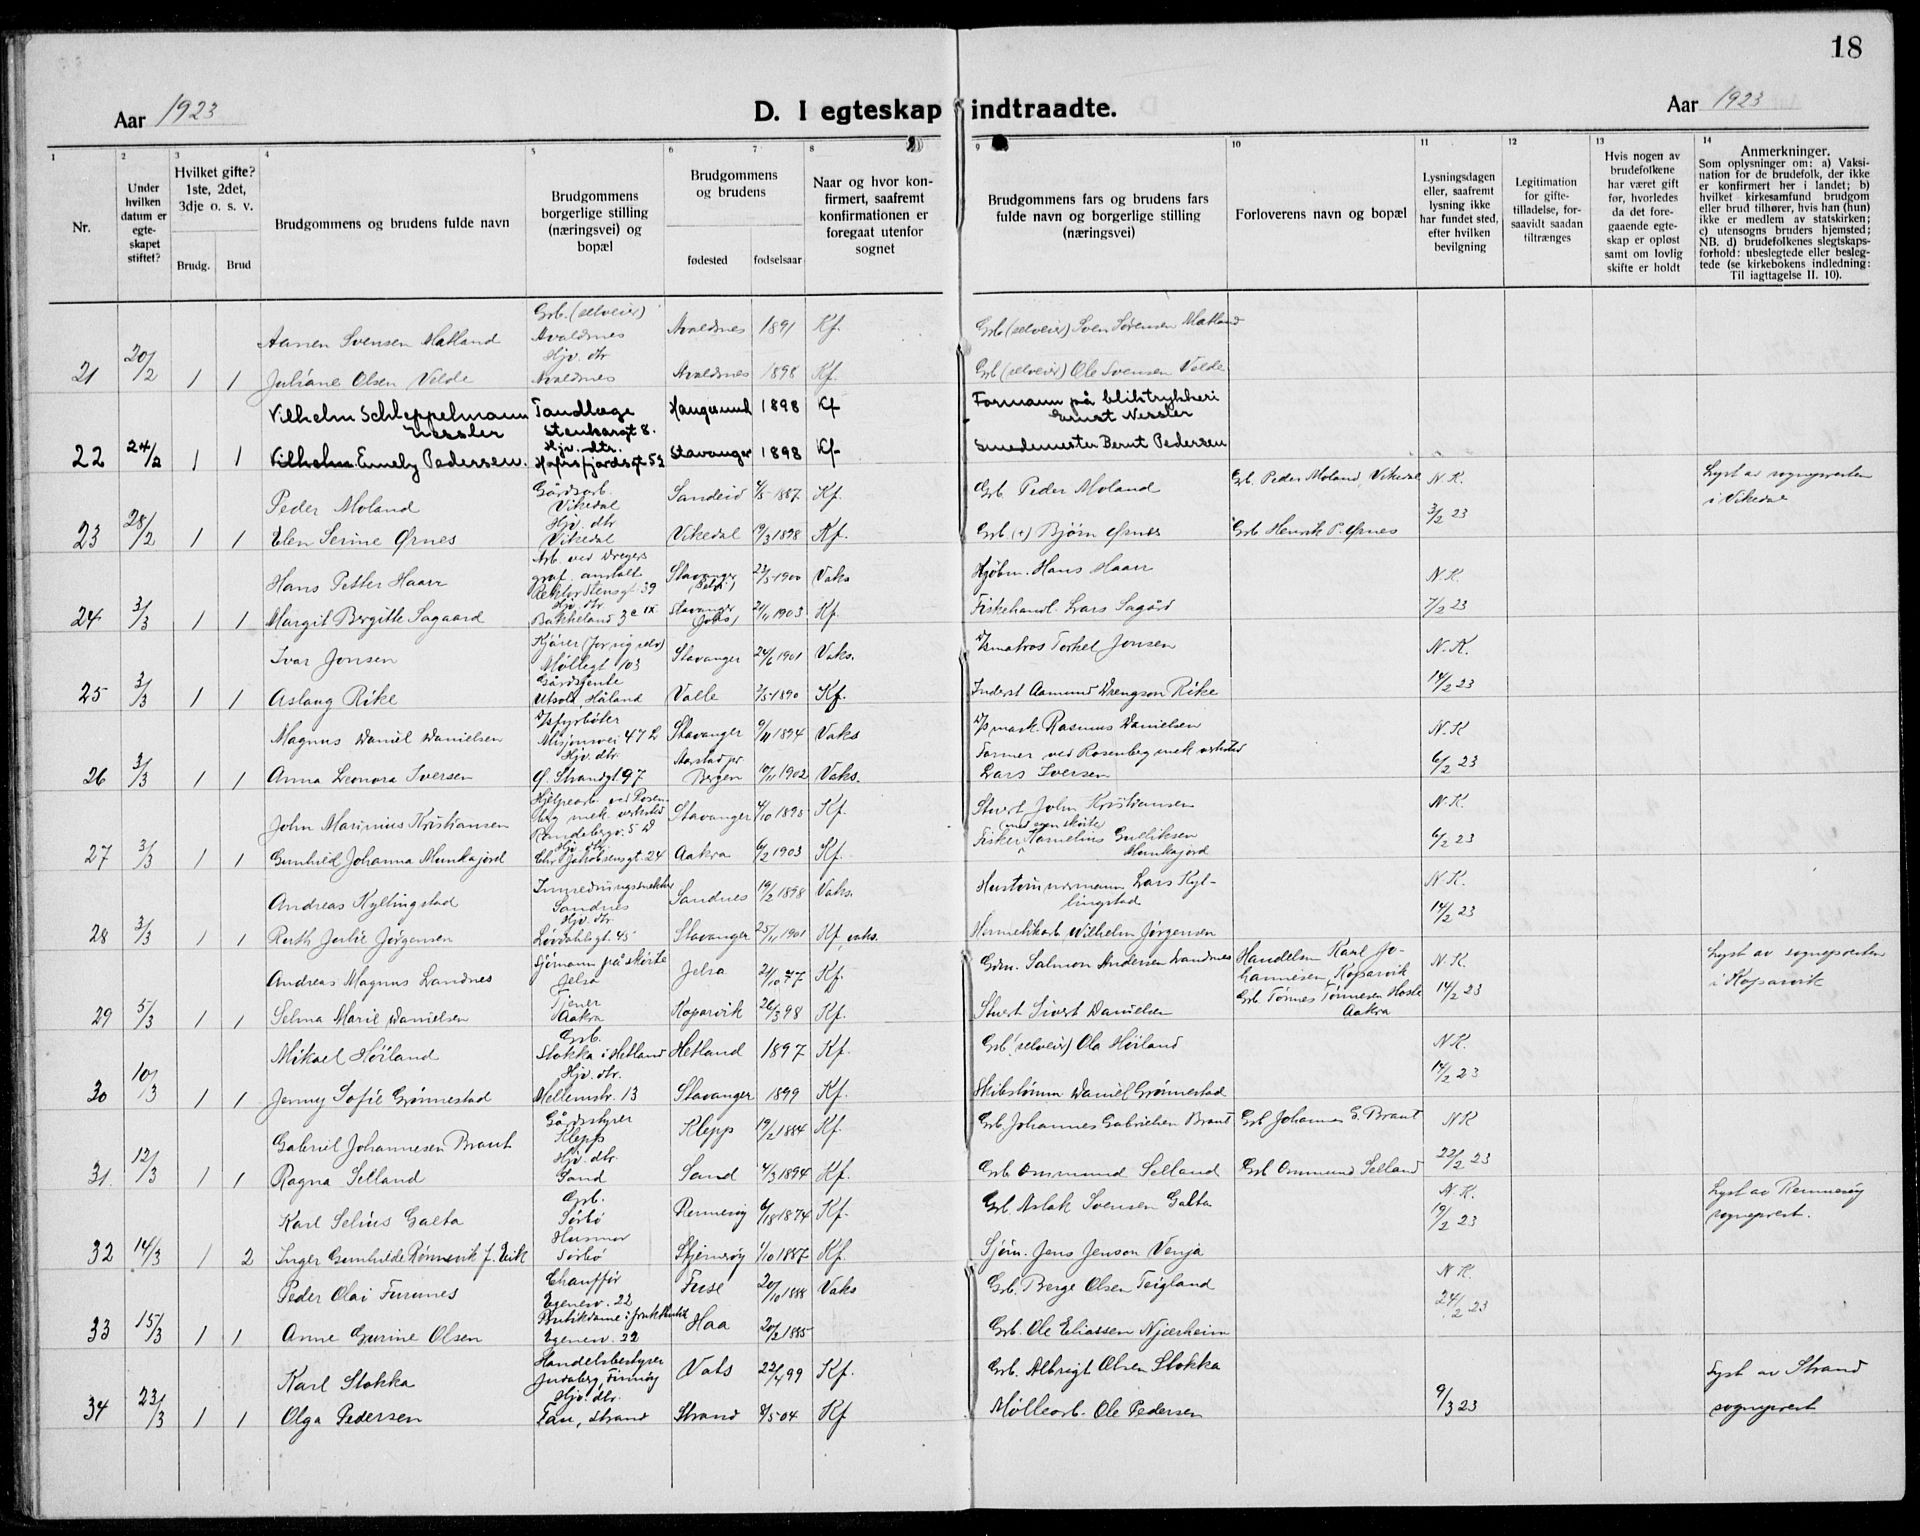 18
Aar 1923
D. I egteskap indtraadte.
Aar 1923
1
2
3
4
5
6
7
8
9
10
11
12
13
14
Nr.
Under hvilken datum er egteskapet stiftet?
Hvilket gifte? 1ste, 2det, 3dje o. s. v.
Brudg.
Brud
Brudgommens og brudens fulde navn
Brudgommens borgerlige stilling (næringsvei) og bopæl
Brudgommens og brudens
fødested
fødselsaar
Naar og hvor konfirmert, saafremt konfirmationen er foregaat utenfor sognet
Brudgommens fars og brudens fars fulde navn og borgerlige stilling (næringsvei)
Forloverens navn og bopæl
Lysningsdagen eller, saafremt lysning ikke har fundet sted, efter hvilken bevilgning
Legitimation for giftetilladelse, forsaavidt saadan tiltrænges
Hvis nogen av brudefolkene har været gift før, hvorledes da det foregaaende egteskap er opløst samt om lovlig skifte er holdt
Anmerkninger.
Som oplysninger om: a) Vaksination for de brudefolk, der ikke er konfirmert her i landet; b) hvilket kirkesamfund brudgom eller brud tilhører, hvis han (hun) ikke er medlem av statskirken; c) utensogns bruders hjemsted; NB. d) brudefolkenes slegtskapsforhold: ubeslegtede eller beslegtede (se kirkebokens indledning: Til iagttagelse II. 10).
Aanen Svensen Matland Grb. (selveier) Avaldsnes Avaldsnes 1891 Kf. Grb (selveier) Sven Sørensen Matland
21 20/2 1 1 Juliane Olsen Velde Hjv. dtr Avaldsnes Avaldsnes 1898 Kf. Grb (selveier) Ole Svensen Velde
Vilhelm Schleppelmann Nessler Tandlæge Stenkargt 8. Haugesund 1898 Kf Formann på bliktrykkeri Ernst Nessler
22 24/2 1 1 Emely Pedersen. Hjv. dtr. Hafrsfjordsgt 53 Stavanger 1898 Kf Smedemester Bernt Pedersen
Peder Moland Gårdsarb. Vikedal Sandeid 4/5-1887. Kf. Grb. Peder Moland Grb. Peder Moland, Vikedal N.K. Lyst av sognepresten i Vikedal
23 28/2 1 1 Elen Serine Ørnes Hjv. dtr Vikedal Vikedal 19/3 1898 Kf. Grb. (+) Bjørn Ørnes Grb Henrik P. Ørnes 3/2 23
Hans Petter Haarr Arb. ved Dregers graf. anstalt 39 Stavanger 23/5-1900 Vaks Kjøbm. Hans Haarr N.K.
24 3/3 1 1 Margit Bergitte Sagaard Hjv. dtr Bakkeland 3c IX Stavanger 1903 Kf. Fiskehandl. Lars Sagård 7/2 23
Ivar Jonsen Møllegt 103 Stavanger 24/6 1901 Vaks. D/smatros Torkel Jonsen N.K.
25 3/3 1 1 Aslaug Rike Gårdsjente Utsola, Håland Valle 2/5-1890 Kf. Inderst Aamund Drengson Rike 14/2 23
Magnus Daniel Danielsen D/sfyrbøter Misjonsvei 47 b Stavanger 9/11 1894 Vaks D/s mask. Rasmus Danielsen N.K
26 3/3 1 1 Anna Leonora Iversen Hjv. dtr. Ø. Strandgt 97 Bergen 10/11 1902 Vaks. Former ved Rosenberg mek. verksted Lars Iversen 6/2 23
John Marinius Kristiansen Hjelpearb. ved Rosenberg mek. verksted 5 Stavanger 4/10 1895 Kf. Stuert John Kristiansen N.K.
27 3/3 1 1 Gunhild Johanna Munkajord Hjv. dtr. Chr. Jakobsensgt. 24 Aakra 6/2 1903 Kf. Fisker (med egen skøite) Kornelius Gulliksen Munkajord 6/2 23
Andreas Kyllingstad Sandnes Sandnes 19/2 1898 Vaks. Hustømmermann Lars Kyllingstad N.K.
28 3/3 1 1 Ruth Jorlie Jørgensen Hjv. dtr. Løvdahlsgt. 45 Stavanger 25/11 1901 Kf. vaks. Hermetikarb. Wilhelm Jørgensen 14/2 23
Andreas Magnus Landnes Sjømann på skøite Jelsa Jelsa 21/10 77 Kf. Gdm. Salmon Andersen Landnes Handelsm Karl Johannesen, Kopervik N.K. Lyst av sognepresten i Kopervik
29 5/3 1 1 Selma Marie Danielsen Tjener Aakra Kopervik 26/3 98 Kf. Stuert Sivert Danielsen Grb Tønnes Tønnesen Hosle Aakra 14/2 23
Mikael Høiland Grb. Stokka i Hetland Hetland 1897 Kf. Grb (selveier) Ola Høiland N.K.
30 10/3 1 1 Jenny Sofie Grønnestad Hjv. dtr. Mellemstr. 13 Stavanger 1899 Kf. Skibstømm Daniel Grønnestad 14/2 23
Gabriel Johannesen Braut Gårdsstyrer Klepp Klepp 19/2 1884 Kf. Grb. Johannes Gabrielsen Braut Grb Johannes G. Braut N.K
31. 12/3 1 1 Ragna Selland Hjv. dtr. Sand Sand 4/3 1894 Kf. Grb Ommund Selland Grb Ommund Selland 22/2 23
Karl Selius Galta Grb. Sørbø Rennesøy 1874 Kf. Grb. Aslak Svensen Galta N.K. 19/2 23 Lyst av Rennesøy sogneprest.
32 14/3 1 2 Inger Gunhilde Rønnevik f. Vik Husmor Sørbø Stjernerøy 1/10 1887 Kf. Sjøm. Jens Jenson Venja
Peder Olai Furunes Chauffør Egenesv. 22 Fuse 20/10 1888 Vaks Grb. Berge Olsen Teigland N.K.
33 15/3 1 1 Anne Gurine Olsen Butikdame i frukthandel Egenesv. 22 Haa 20/2 1885 Grb. Ole Eliassen Njærheim 24/2 23
Karl Stokka Handelsbestyrer Judaberg, Finnøy Vats 22/4 99 Kf. Grb. Albrigt Olsen Stokka Lyst av Strand sogneprest
34 23/3 1 1 Olga Pedersen Hjv. dtr. Tau, Strand Strand 8/5 04 Kf Møllearb. Ole Pedersen 9/3 23